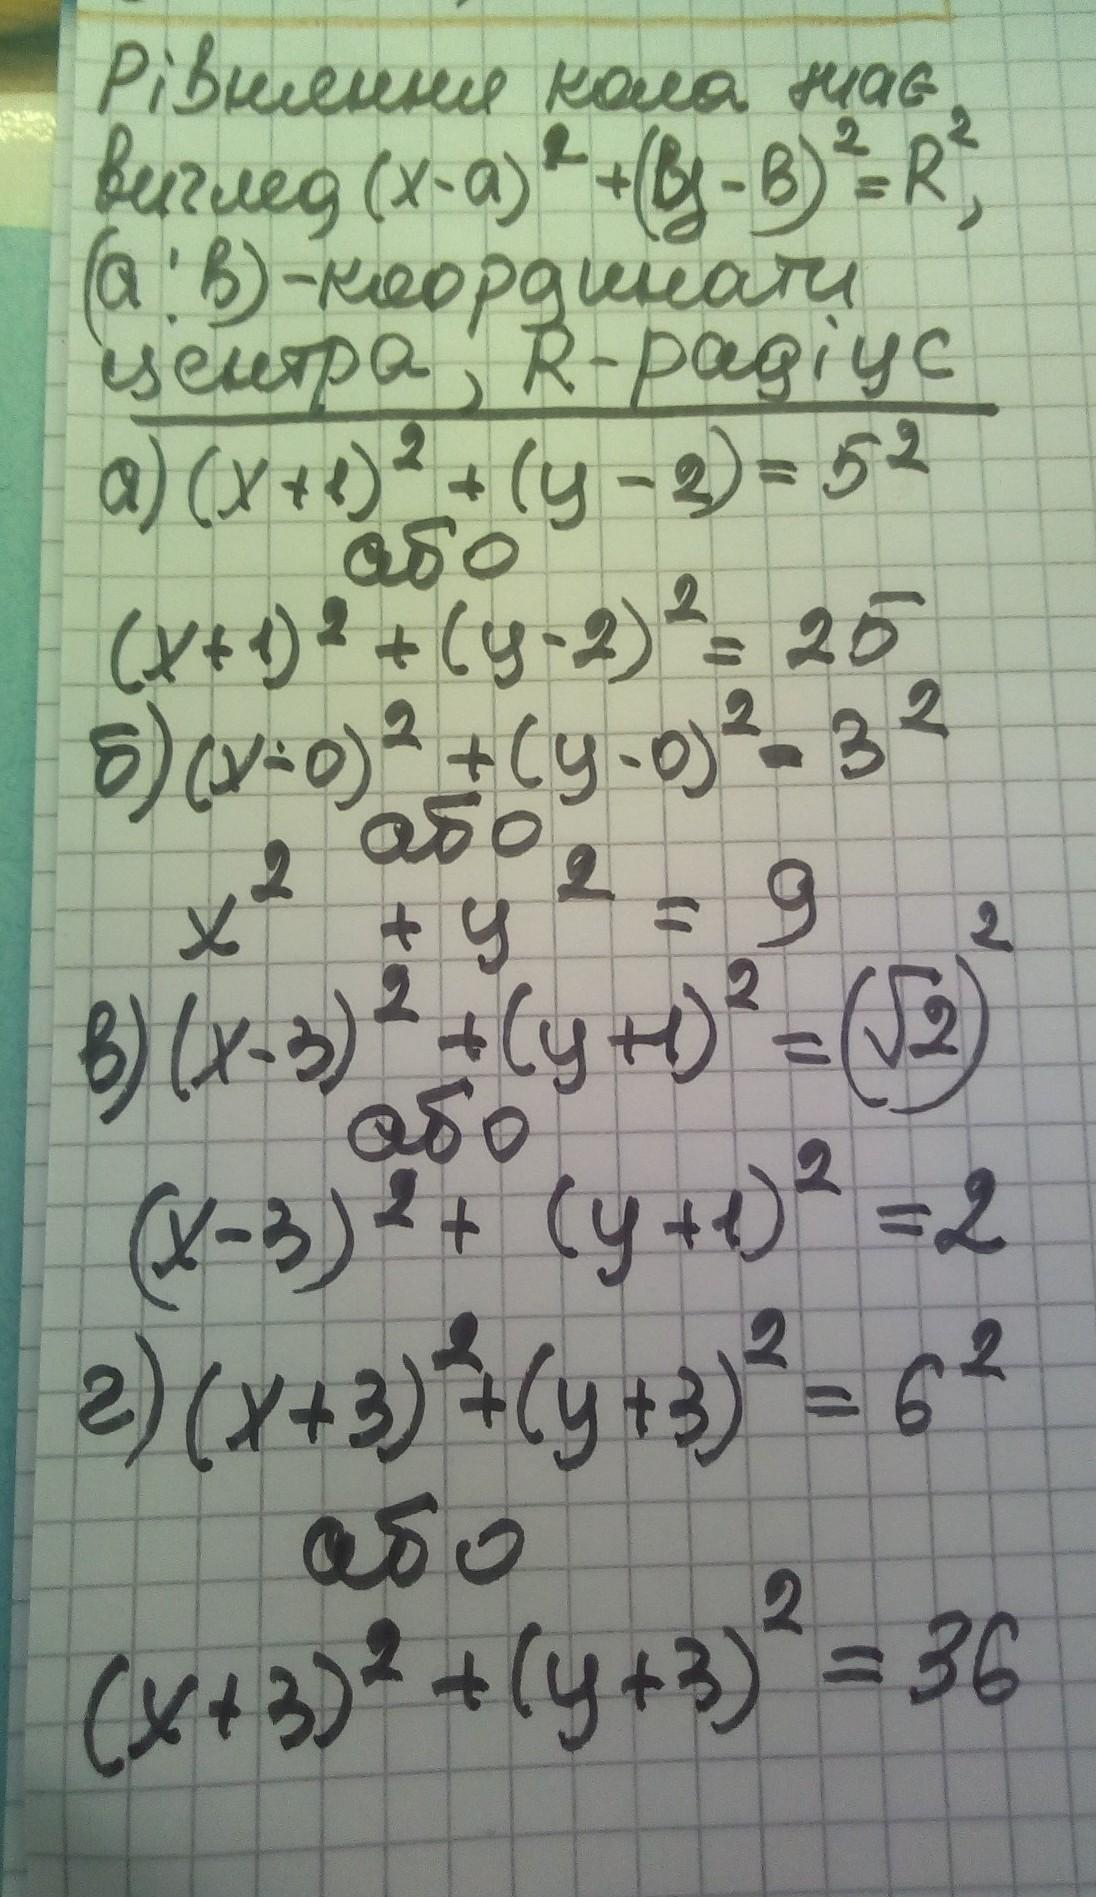 Рівняння кола має
вигляд (x-a)² + (y-в)² = R²,
(a;в)-координати
центра, R-радіус
а) (x+1)² + (y-2) = 5²
або
(x+1)² + (y-2)² = 25
б) (x-0)² + (y-0)² = 3²
або
x² + y² = 9
в) (x-3)² + (y+1)² = (√2)²
або
(x-3)² + (y+1)² = 2
г) (x+3)² + (y+3)² = 6²
або
(x+3)² + (y+3)² = 36